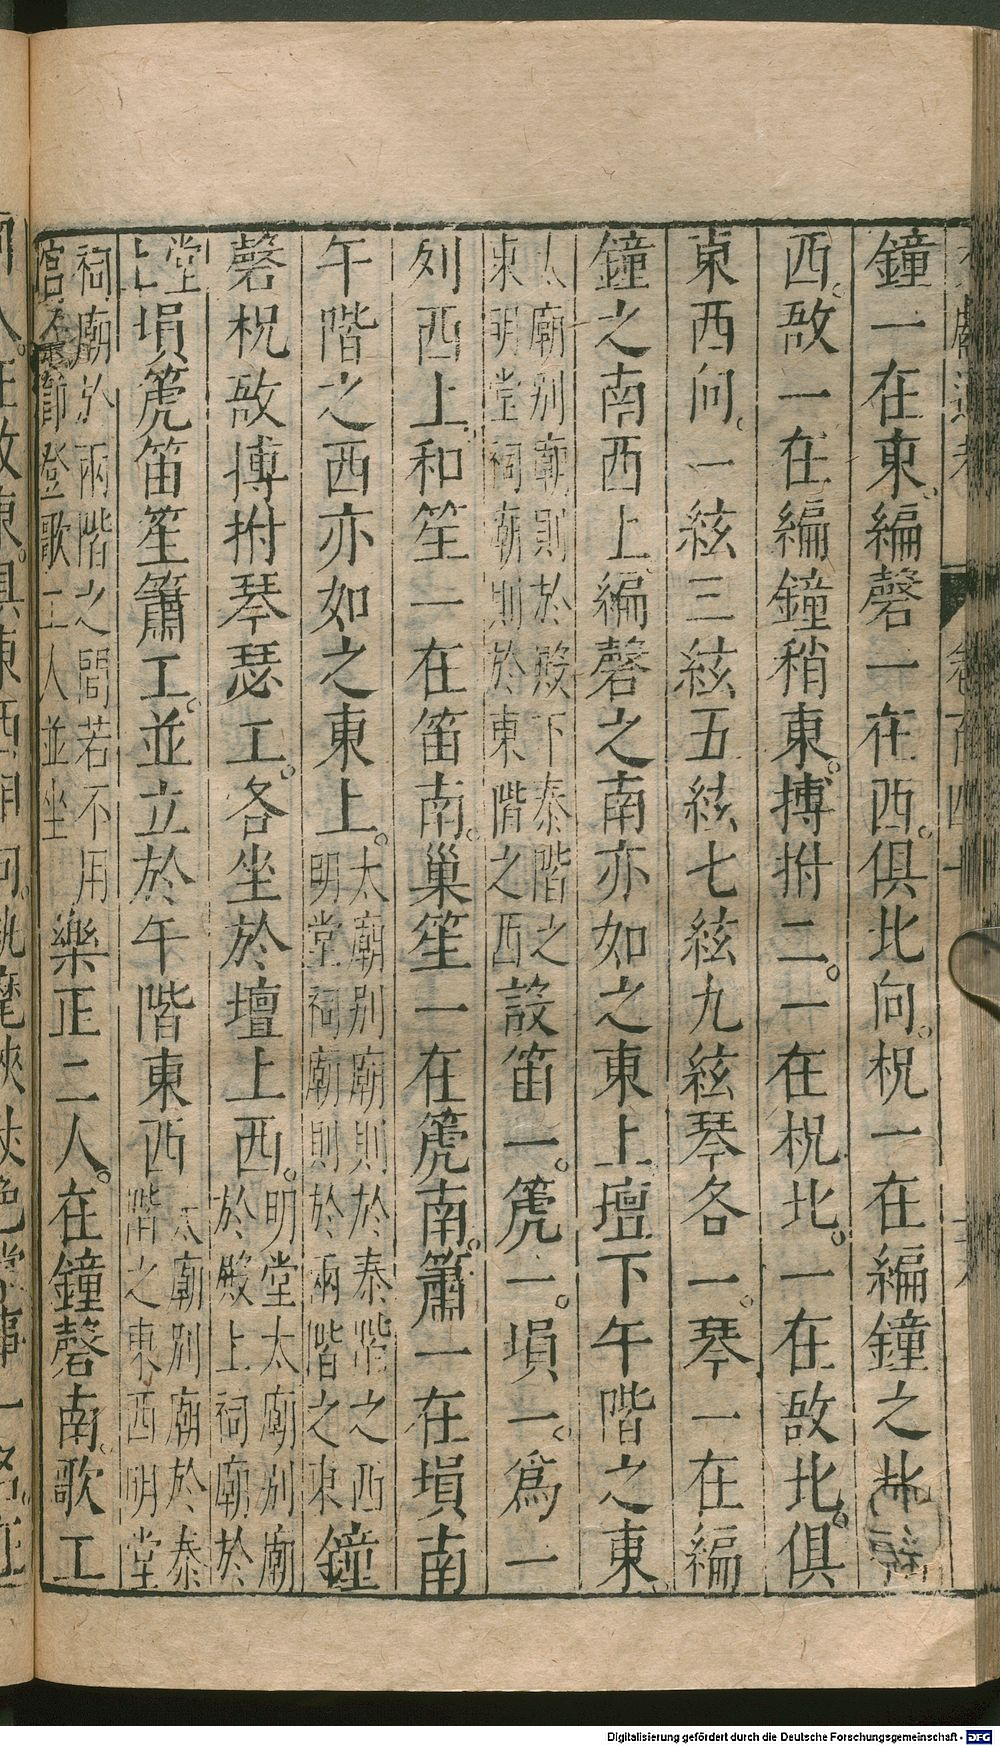 鐘一在東編磬一在西俱北向柷一在編鐘之北稍
西敔一在編鐘稍東搏拊二一在柷北一在敔北俱
東西向一絃三絃五絃七絃九絃琴各一琴一在編
鐘之南西上編磬之南亦如之東上壇下午階之東
太廟別廟則於殿下泰階之
東明堂祠廟則於東階之西
設笛一篪一塤一爲一
列西上和笙一在笛南巢笙一在篪南簫一在塤南
午階之西亦如之東上
太廟別廟則於泰階之西
明堂祠廟則於兩階之東
鐘
磬柷敔搏拊琴瑟工各坐於壇上西
明堂太廟別廟
於殿上祠廟於
堂
上
塤篪笛笙簫工並立於午階東西
太廟別廟於泰
階之東西明堂
祠廟於兩階之間若不用
宮架即登歌工人並坐
樂正二人在鐘磬南歌工
Digitalisierung gefördert durch die Deutsche Forschungsgemeinschaft - DFG